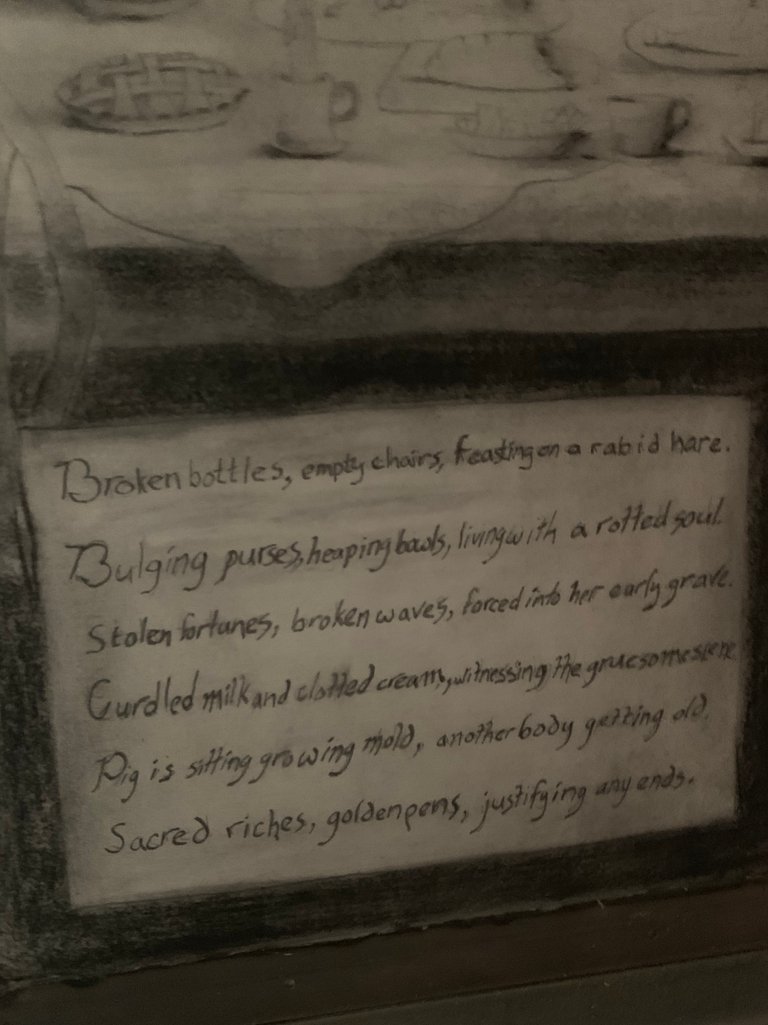 Broken bottles, empty chairs, feasting on a rabid hare.
Bulging purses, heaping bowls, living with a rotted soul.
Stolen fortunes, broken waves, forced into her early grave.
Curdled milk and clotted cream, witnessing the gruesome scene
Pig is sitting growing mold, another body getting old.
Sacred riches, golden pens, justifying any ends.